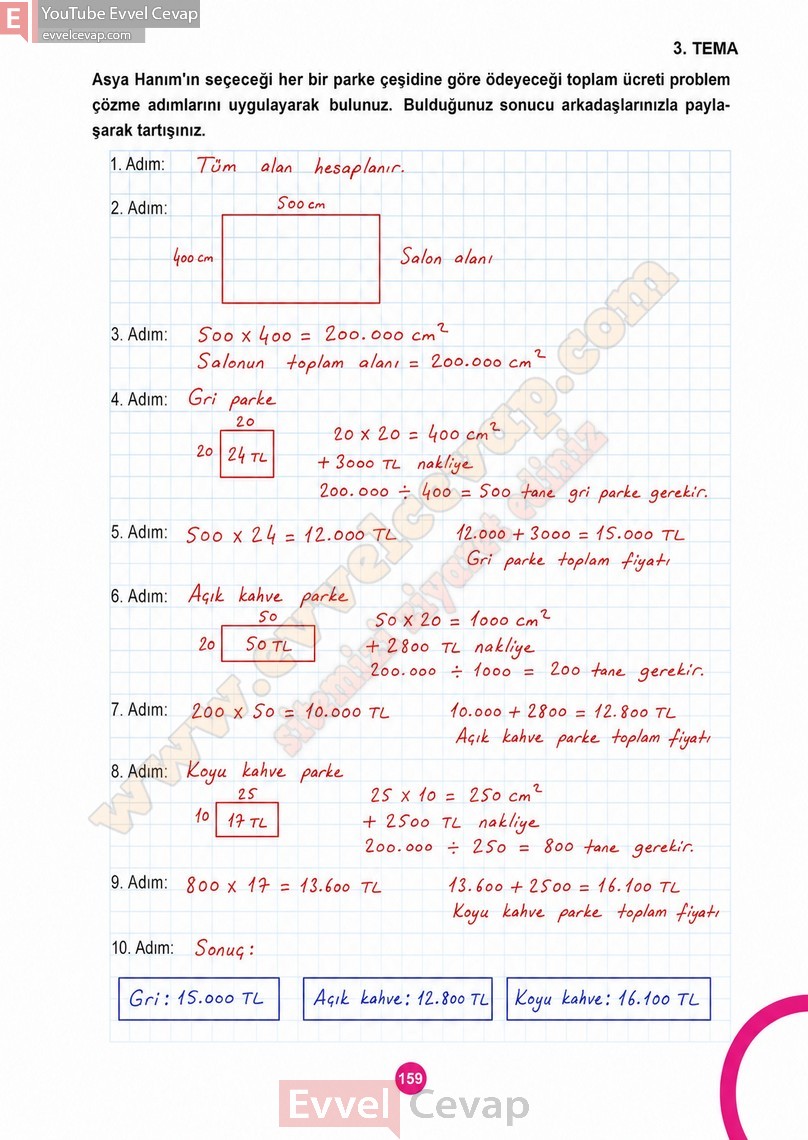 YouTube Evvel Cevap
evvelcevap.com
3. TEMA
Asya Hanım'ın seçeceği her bir parke çeşidine göre ödeyeceği toplam ücreti problem
çözme adımlarını uygulayarak bulunuz. Bulduğunuz sonucu arkadaşlarınızla payla-
şarak tartışınız.
1. Adım: Tüm alan hesaplanır.
2. Adım: 500 cm
400 cm Salon alanı
3. Adım: 500 x 400 = 200.000 cm²
Salonun toplam alanı = 200.000 cm²
4. Adım: Gri parke
20
20 24 TL 20 x 20 = 400 cm²
+ 3000 TL nakliye
200.000 ÷ 400 = 500 tane gri parke gerekir.
5. Adım: 500 x 24 = 12.000 TL 12.000 + 3000 = 15.000 TL
Gri parke toplam fiyatı
6. Adım: Açık kahve parke
50
20 50 TL 50 x 20 = 1000 cm²
+ 2800 TL nakliye
200.000 ÷ 1000 = 200 tane gerekir.
7. Adım: 200 x 50 = 10.000 TL 10.000 + 2800 = 12.800 TL
Açık kahve parke toplam fiyatı
8. Adım: Koyu kahve parke
25
10 17 TL 25 x 10 = 250 cm²
+ 2500 TL nakliye
200.000 ÷ 250 = 800 tane gerekir.
9. Adım: 800 x 17 = 13.600 TL 13.600 + 2500 = 16.100 TL
Koyu kahve parke toplam fiyatı
10. Adım: Sonuç:
Gri: 15.000 TL Açık kahve: 12.800 TL Koyu kahve: 16.100 TL
www.evvelcevap.com
sitemizi ziyaret ediniz
159
Evvel Cevap